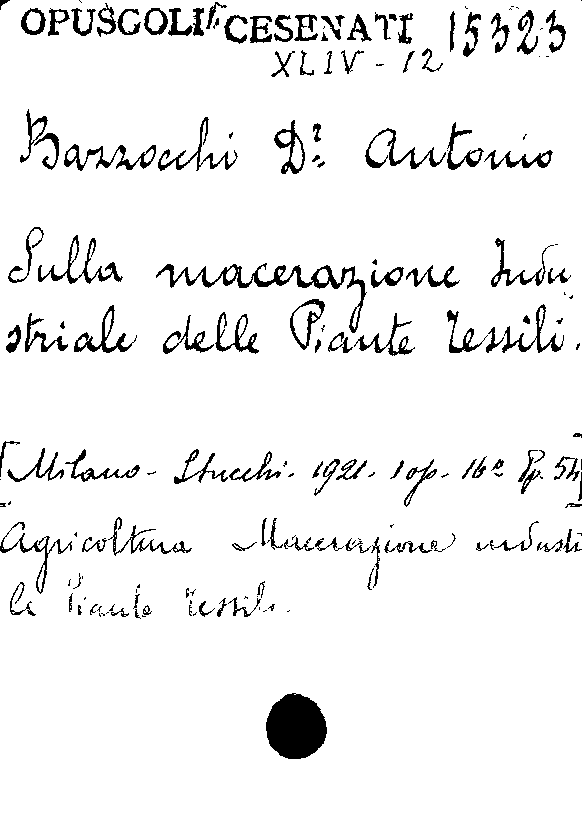 OPUSCOLI CESENATI 15323
XLIV - 12
Bazzocchi D.r Antonio
Sulla macerazione Indu
striale delle Piante Tessili.
[Milano - Stucchi - 1921 - 1 op. - 16º Pp. 54]
Agricoltura Macerazione industi
le Piante Tessili.